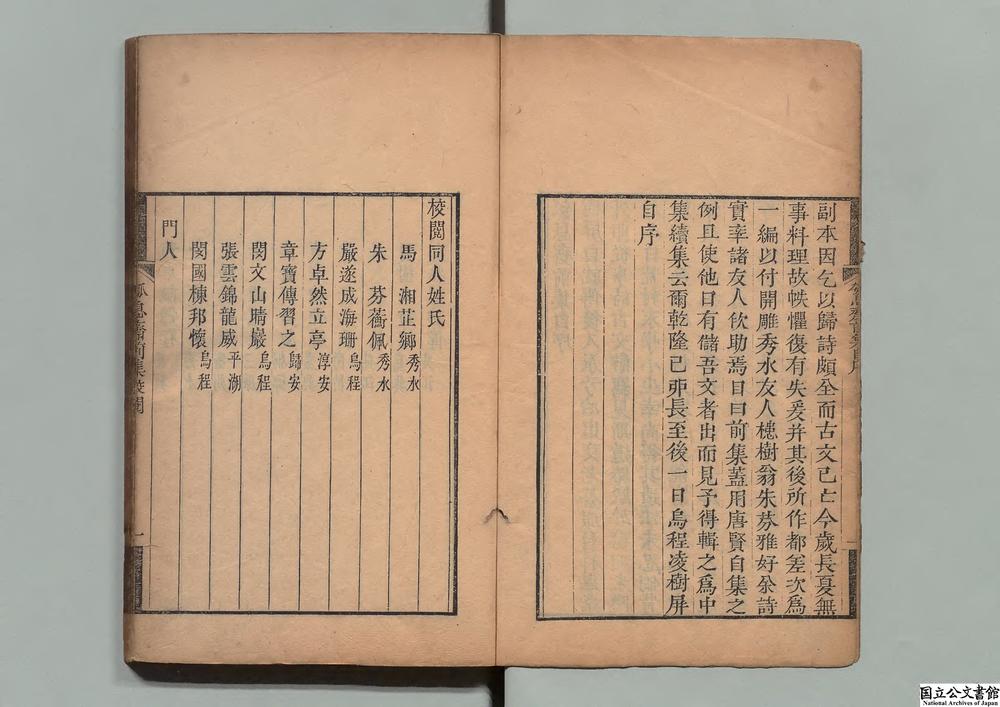 副本因乞以歸詩頗全而古文已亡今歲長夏無
事料理故帙懼復有失爰并其後所作都差次爲
一編以付開雕秀水友人槵樹翁朱芬雅好余詩
實率諸友人佽助焉目曰前集蓋用唐賢自集之
例且使他日有儲吾文者出而見予得輯之爲中
集續集云爾乾隆己丣長至後一日烏程凌樹屏
自序
校閱同人姓氏
馬湘芷鄉秀水
朱芬薌佩秀水
嚴遂成海珊烏程
方卓然立亭淳安
章寶傳習之歸安
閔文山晴巖烏程
張雲錦龍威平湖
閔國棟邦懷烏程
門人
瓠息齋前集
一
国立公文書館
National Archives of Japan